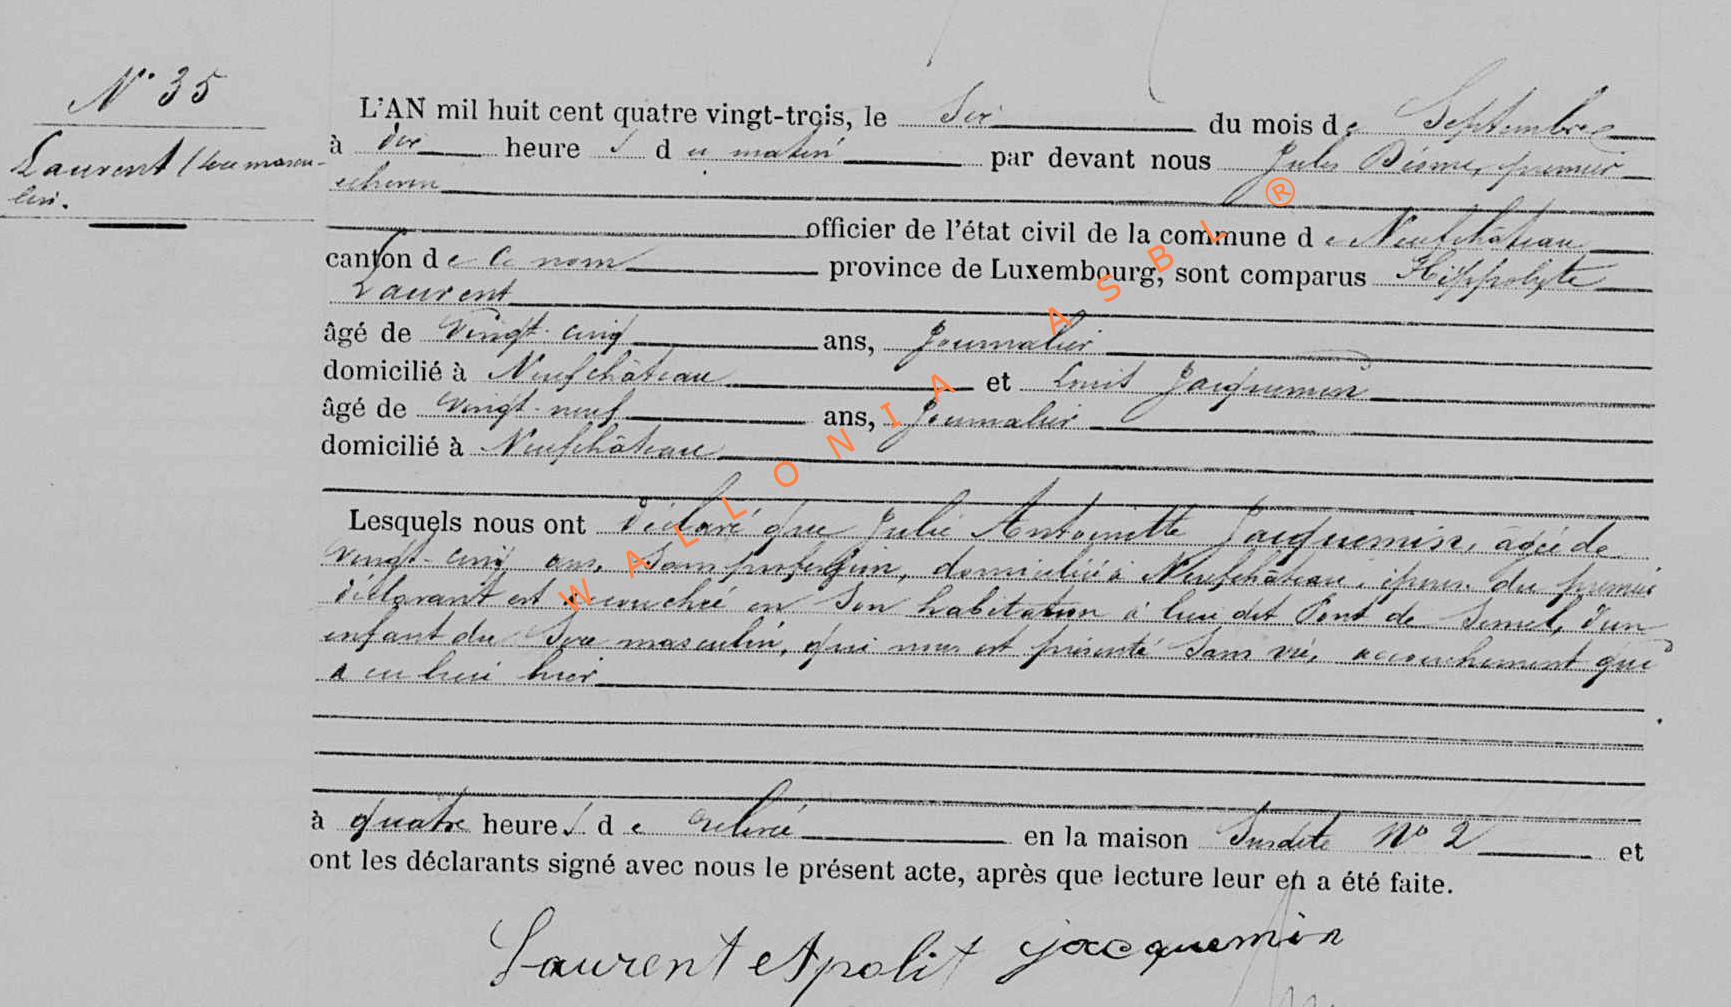 N° 35
Laurent (sexe mascu-
lin.
L'AN mil huit cent quatre vingt-trois, le Six du mois de Septembre
à dix heures du matin par devant nous Jules premier
échevin
officier de l'état civil de la commune de Neufchâteau
canton de ce nom province de Luxembourg, sont comparus Hippolyte
Laurent
âgé de vingt-cinq ans, Journalier
domicilié à Neufchâteau et Louis Jacquemin
âgé de vingt-neuf ans, Journalier
domicilié à Neufchâteau
Lesquels nous ont déclaré que Julie Antoinette Jacquemin, âgée de
vingt-cinq ans, Sans profession, domiciliée à Neufchâteau, épouse du premier
déclarant est accouchée en Son habitation à lieu dit Pont de d'un
enfant du Sexe masculin, qui nous est présenté Sans vie, accouchement qui
a eu lieu hier
à quatre heures de relevée en la maison Susdite N° 2 et
ont les déclarants signé avec nous le présent acte, après que lecture leur en a été faite.
Laurent etpolit jacquemin
WALLONIA ASBL ®